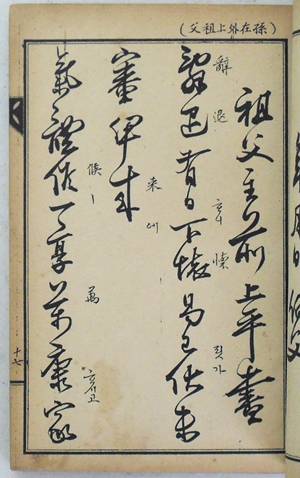 (孫在外上祖父)
祖父主前上平書
辭退有日下懷曷已伏未
辭退 懷 릿가
審伊來
來 에
氣體候一享萬康家
候 ㅣ 萬
十七